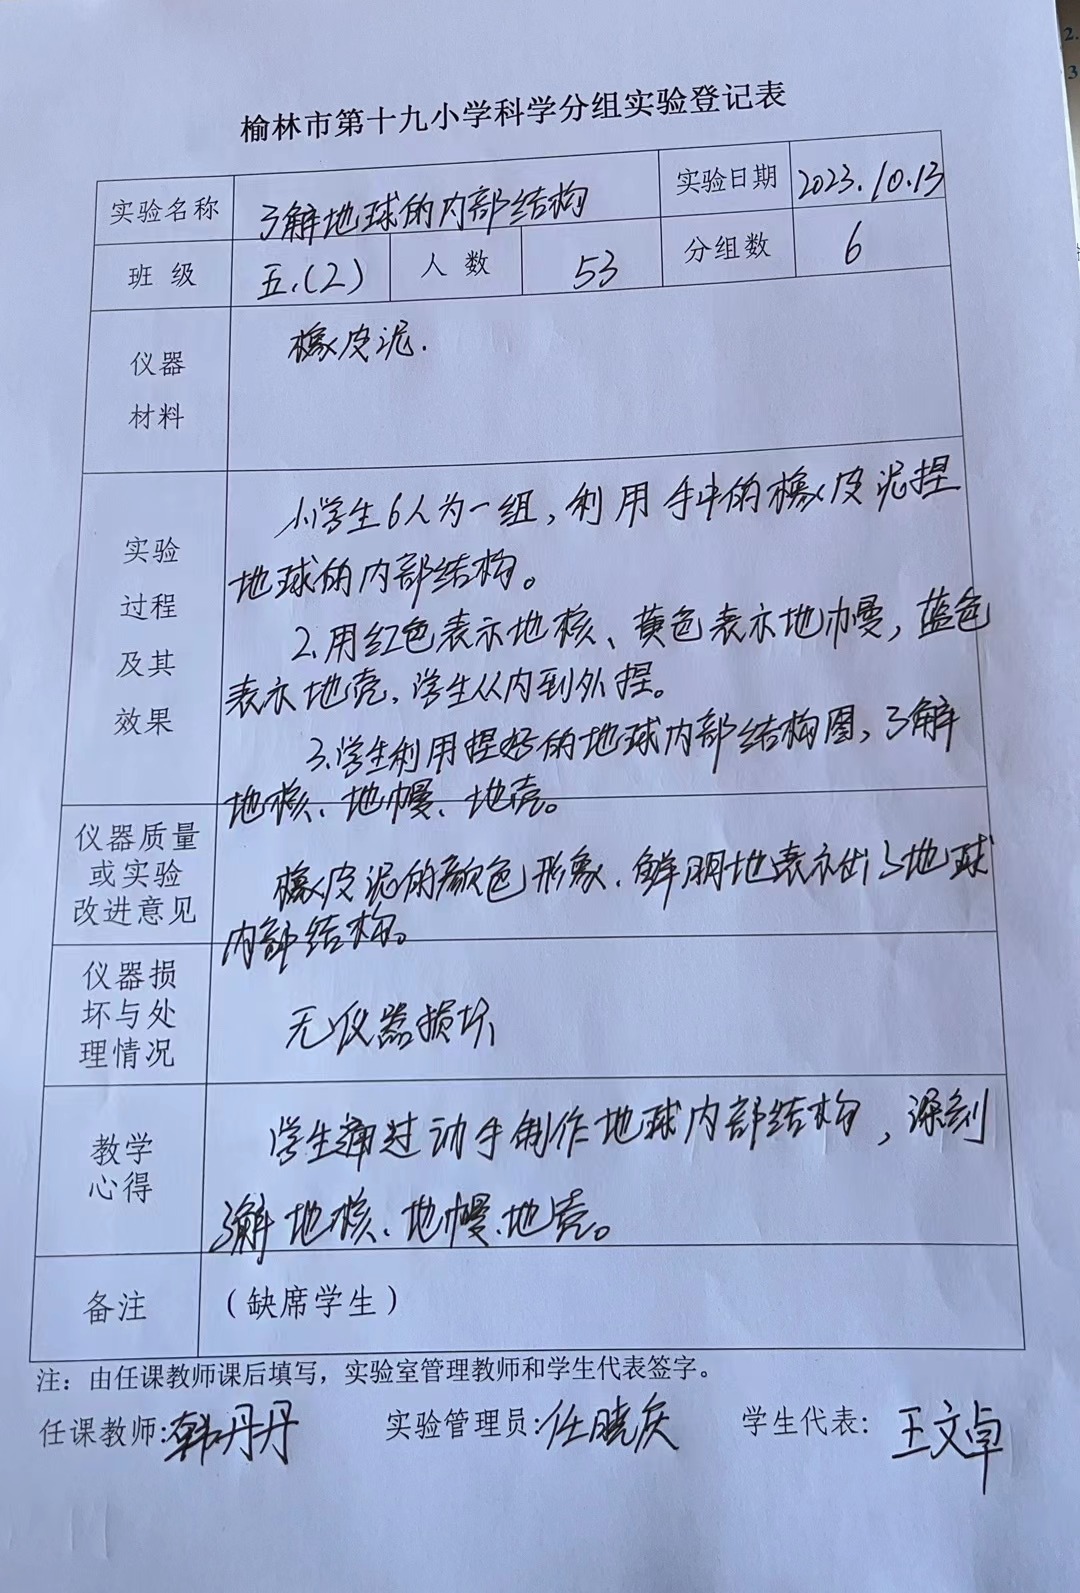 榆林市第十九小学科学分组实验登记表
实验名称 了解地球的内部结构 实验日期 2023.10.13
班 级 五.(2) 人 数 53 分组数 6
仪器
材料
橡皮泥.
实验
过程
及其
效果
1.学生6人为一组,利用手中的橡皮泥捏
地球的内部结构。
2.用红色表示地核、黄色表示地幔,蓝色
表示地壳,学生从内到外捏。
3.学生利用捏好的地球内部结构图,了解
地核、地幔、地壳。
仪器质量
或实验
改进意见
橡皮泥的颜色形象、鲜明地表示出了地球
内部结构。
仪器损
坏与处
理情况
无仪器损坏
教学
心得
学生通过动手制作地球内部结构,深刻
了解地核、地幔、地壳。
备注
(缺席学生)
注:由任课教师课后填写,实验室管理教师和学生代表签字。
任课教师:韩丹丹 实验管理员:任晓庆 学生代表: 王文卓
2.
3